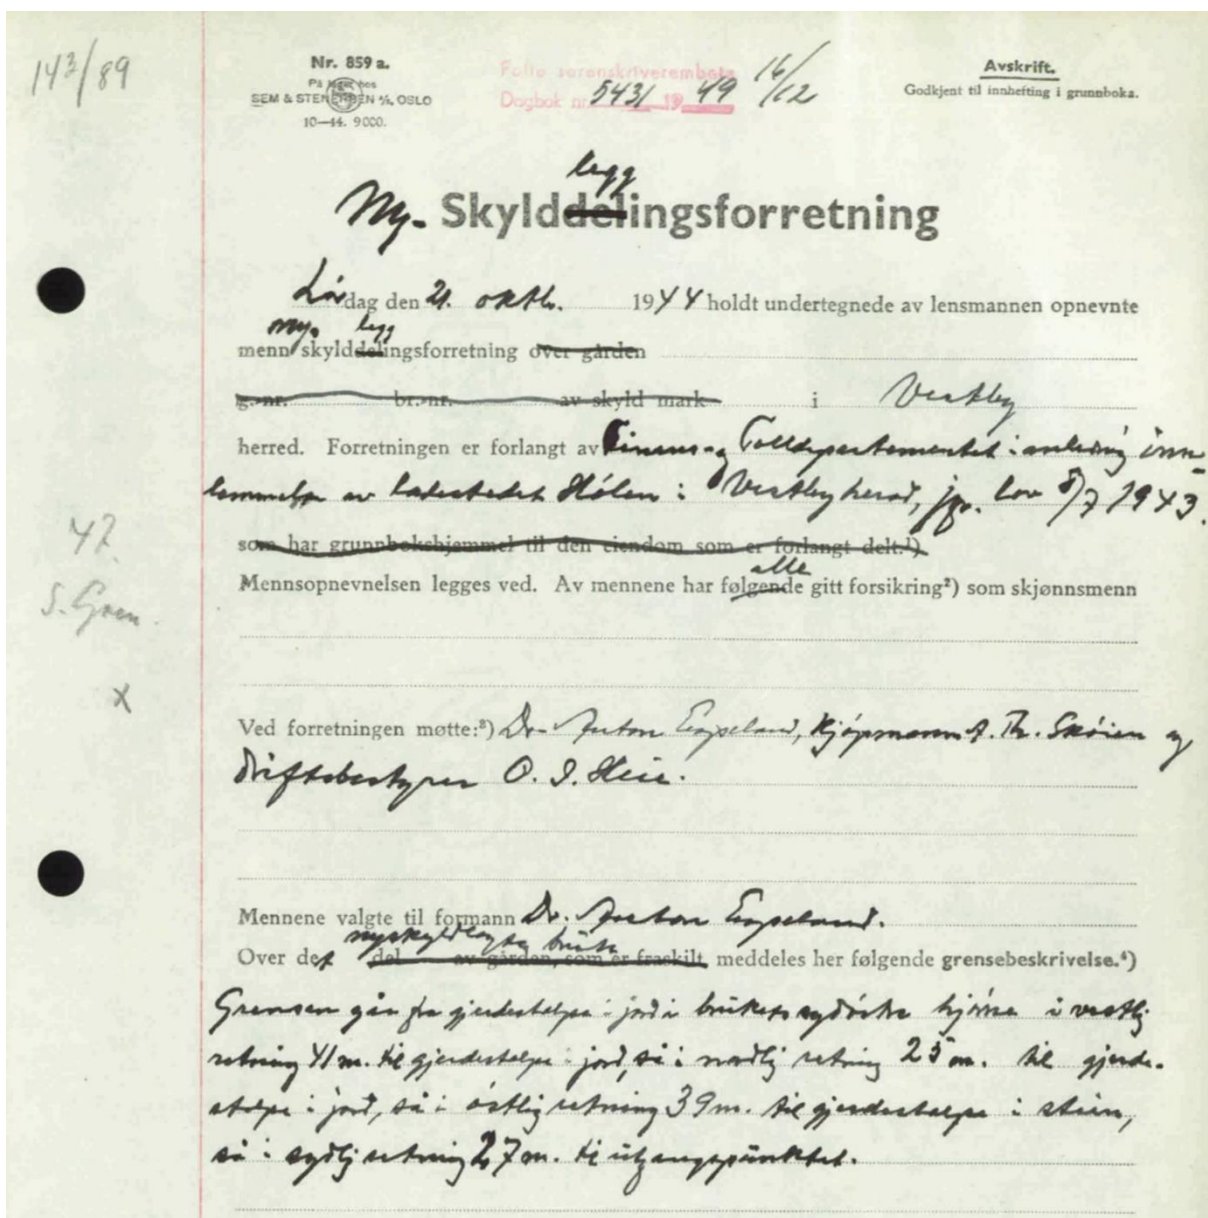 143/89
Nr. 859 a.
På lager hos
SEM & STENERSEN A/S, OSLO
10—44. 9000.
Follo sorenskriverembete
Dagbok nr. 5431 1949 16/12
Avskrift.
Godkjent til innhefting i grunnboka.
legg
Ny- Skylddelingsforretning
Lørdag den 21. oktbr. 1944 holdt undertegnede av lensmannen opnevnte
ny- legg
menn skylddelingsforretning over gården
g.-nr. br.-nr. av skyld mark i Vestby
herred. Forretningen er forlangt av Finans- og Tolldepartementet i anledning inn-
lemmelse av ladestedet Hølen i Vestby herad, jfr. lov 8/7 1943.
som har grunnbokshjemmel til den eiendom som er forlangt delt.¹)
alle
Mennsopnevnelsen legges ved. Av mennene har følgende gitt forsikring²) som skjønnsmenn
42.
S. Gren.
x
Ved forretningen møtte:³) Dr. Anton Espeland, kjøpmann A. Th. Skøien og
driftsbestyrer O. I. Heie.
Mennene valgte til formann Dr. Anton Espeland.
nyskyldlagte bruk
Over det del av gården, som er fraskilt meddeles her følgende grensebeskrivelse.⁴)
Grensen går fra gjerdestolpe i jord i brukets sydøstre hjørne i vestlig
retning 41 m. til gjerdestolpe i jord, så i nordlig retning 25 m. til gjerde-
stolpe i jord, så i østlig retning 39 m. til gjerdestolpe i stein,
så i sydlig retning 27 m. til utgangspunktet.